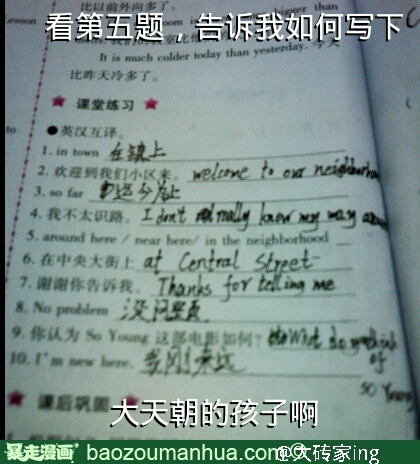 看第五题，告诉我如何写下
比以前外向多了。
Lesson
bigger than
It is much colder today than yesterday. 今天
比昨天冷多了。
★ 课堂练习 ★
to
●英汉互译。
1. in town 在镇上
2. 欢迎到我们小区来。 welcome to our neighborhood
3. so far 到迄今为止
4. 我不太识路。 I don't really know my way around
5. around here / near here/ in the neighborhood
6. 在中央大街上 at Central Street
7. 谢谢你告诉我。 Thanks for telling me
8. No problem 没问题
9. 你认为 So Young 这部电影如何? What do you think of
10. I'm new here. 我刚来这
So Young
★ 课后巩固 ★
大天朝的孩子啊
暴走漫画 baozoumanhua.com @火砖家ing